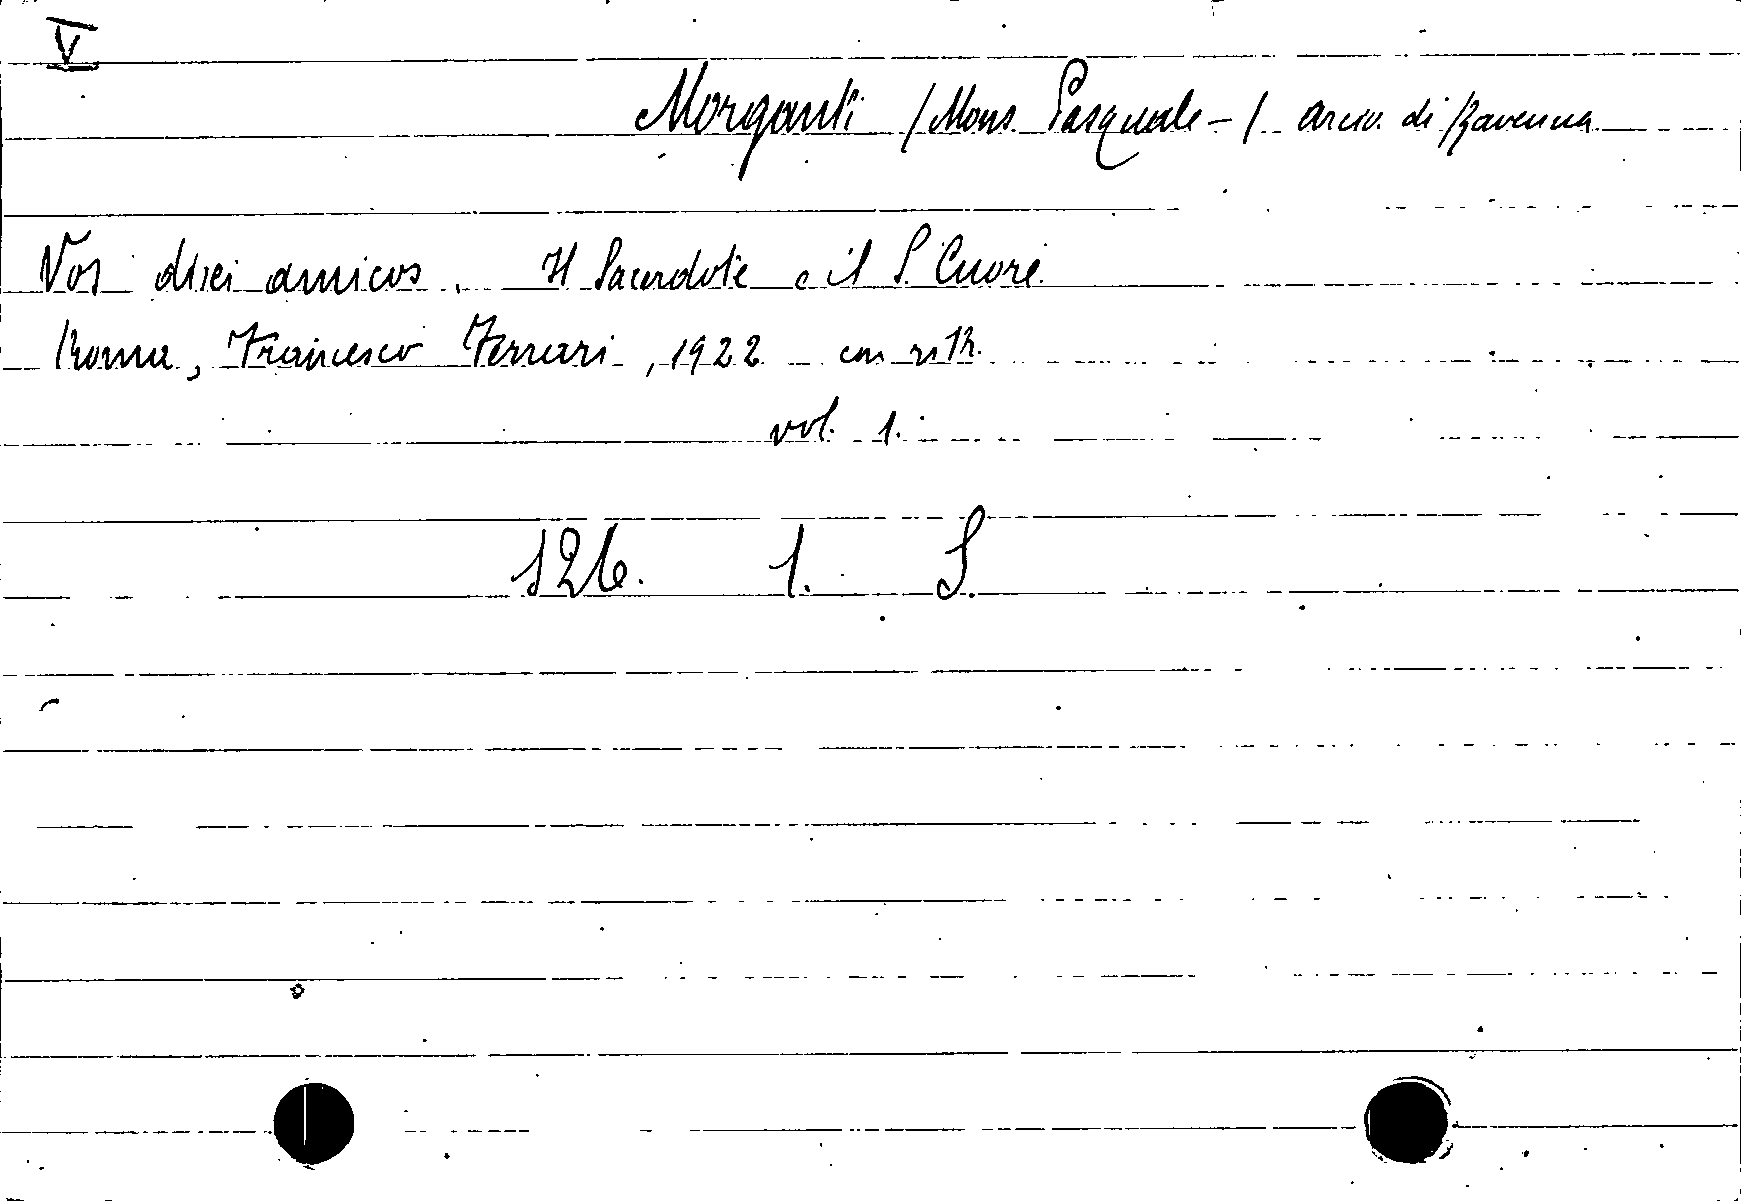 V
Morganti / Mons. Pasquale - / arciv. di Ravenna
Vos dixi amicos. Il Sacerdote e il S. Cuore
Roma, Francesco Ferrari, 1922 con ritr.
vol. 1.
126. 1. S.